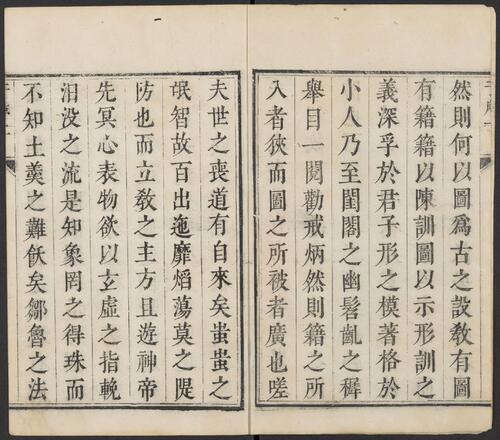 然則何以圖爲古之設敎有圖
有籍籍以陳訓圖以示形訓之
義深孚於君子形之模著格於
小人乃至閨閤之幽髫齓之穉
舉目一閱勸戒炳然則籍之所
入者狹而圖之所被者廣也嗟
夫世之喪道有自來矣蚩蚩之
氓智故百出迤靡熖蕩莫之隄
防也而立敎之主方且遊神帝
先冥心表物欲以玄虛之指輓
汨没之流是知象罔之得珠而
不知土羮之難飫矣鄒魯之法